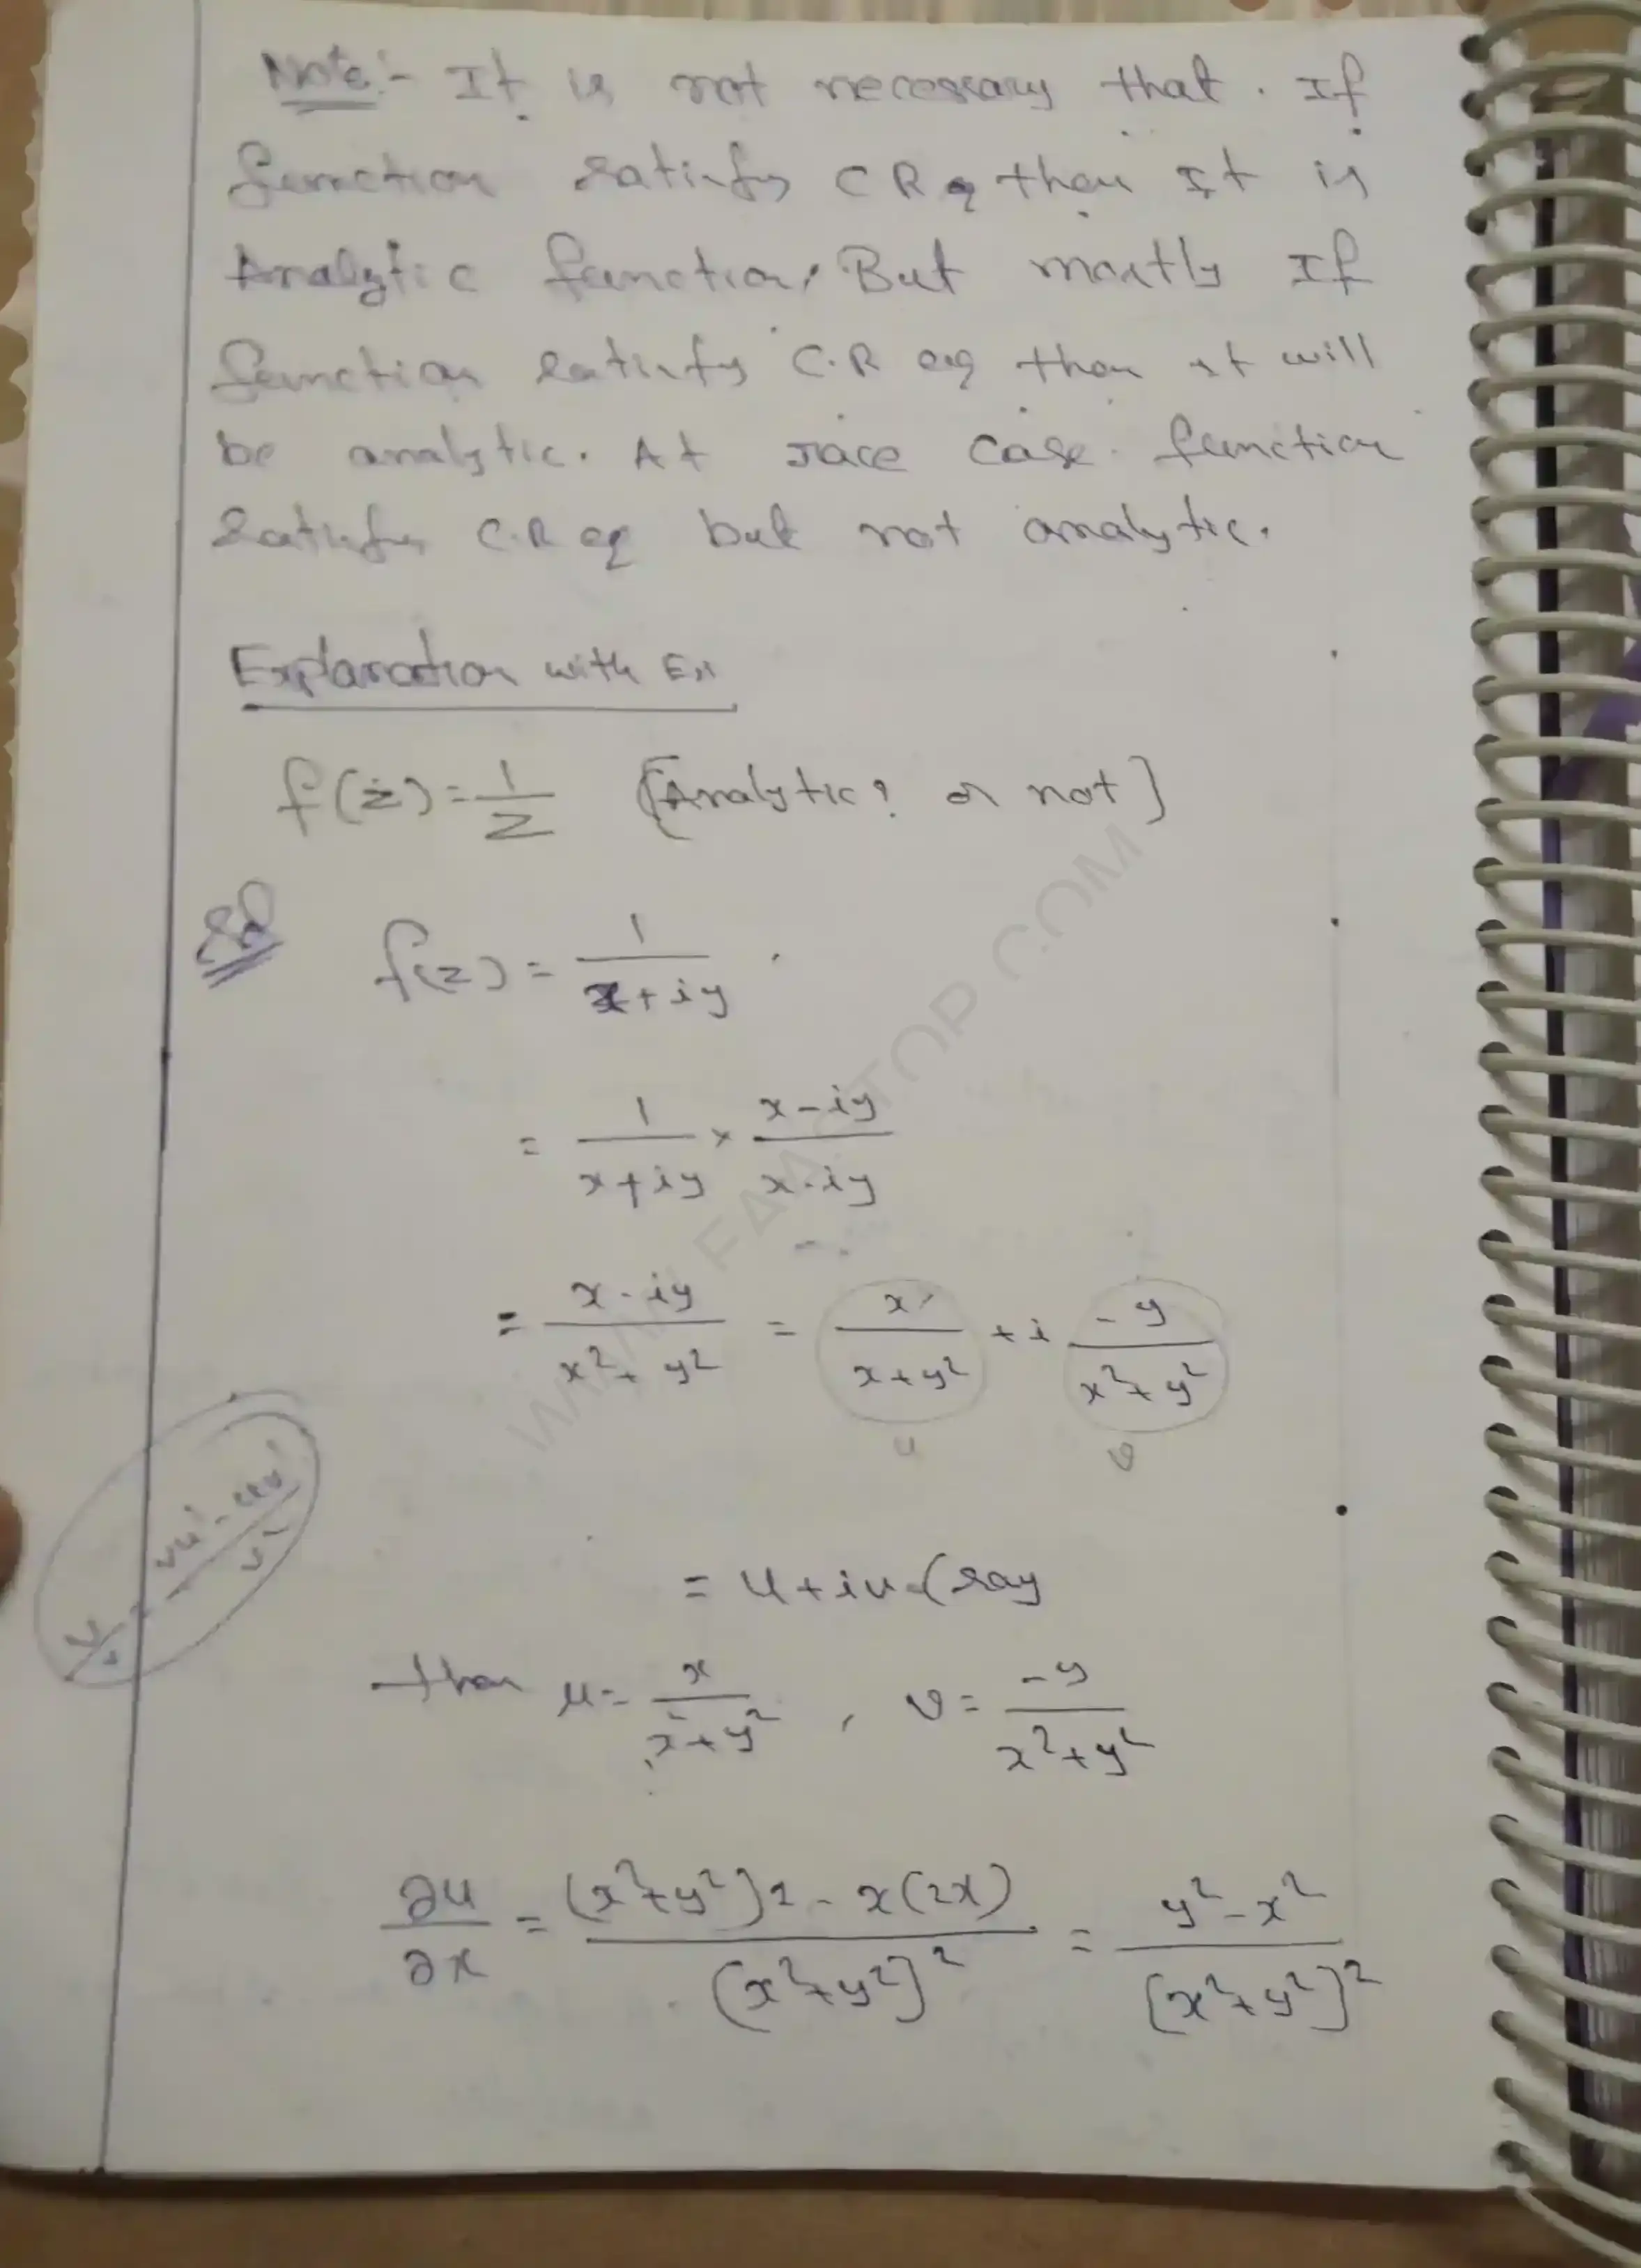 Note:- It is not necessary that. If
function satisfy C R eq then It is
Analytic function, But mostly If
function satisfy C.R eq then it will
be analytic. At race case function
satisfy C.R eq but not analytic.
Explanation with Ex
f(z) = 1/z [Analytic? or not]
Sol f(z) = 1/(x+iy)
= 1/(x+iy) × (x-iy)/(x-iy)
= (x-iy)/(x²+y²) = x/(x+y²) + i (-y)/(x²+y²)
u v
u/v = (vu'-uv')/v²
= u+iv (say
then u = x/(x²+y²) , v = -y/(x²+y²)
∂u/∂x = ((x²+y²)1 - x(2x))/(x²+y²)² = (y²-x²)/[x²+y²]²
WWW.FAASTOP.COM